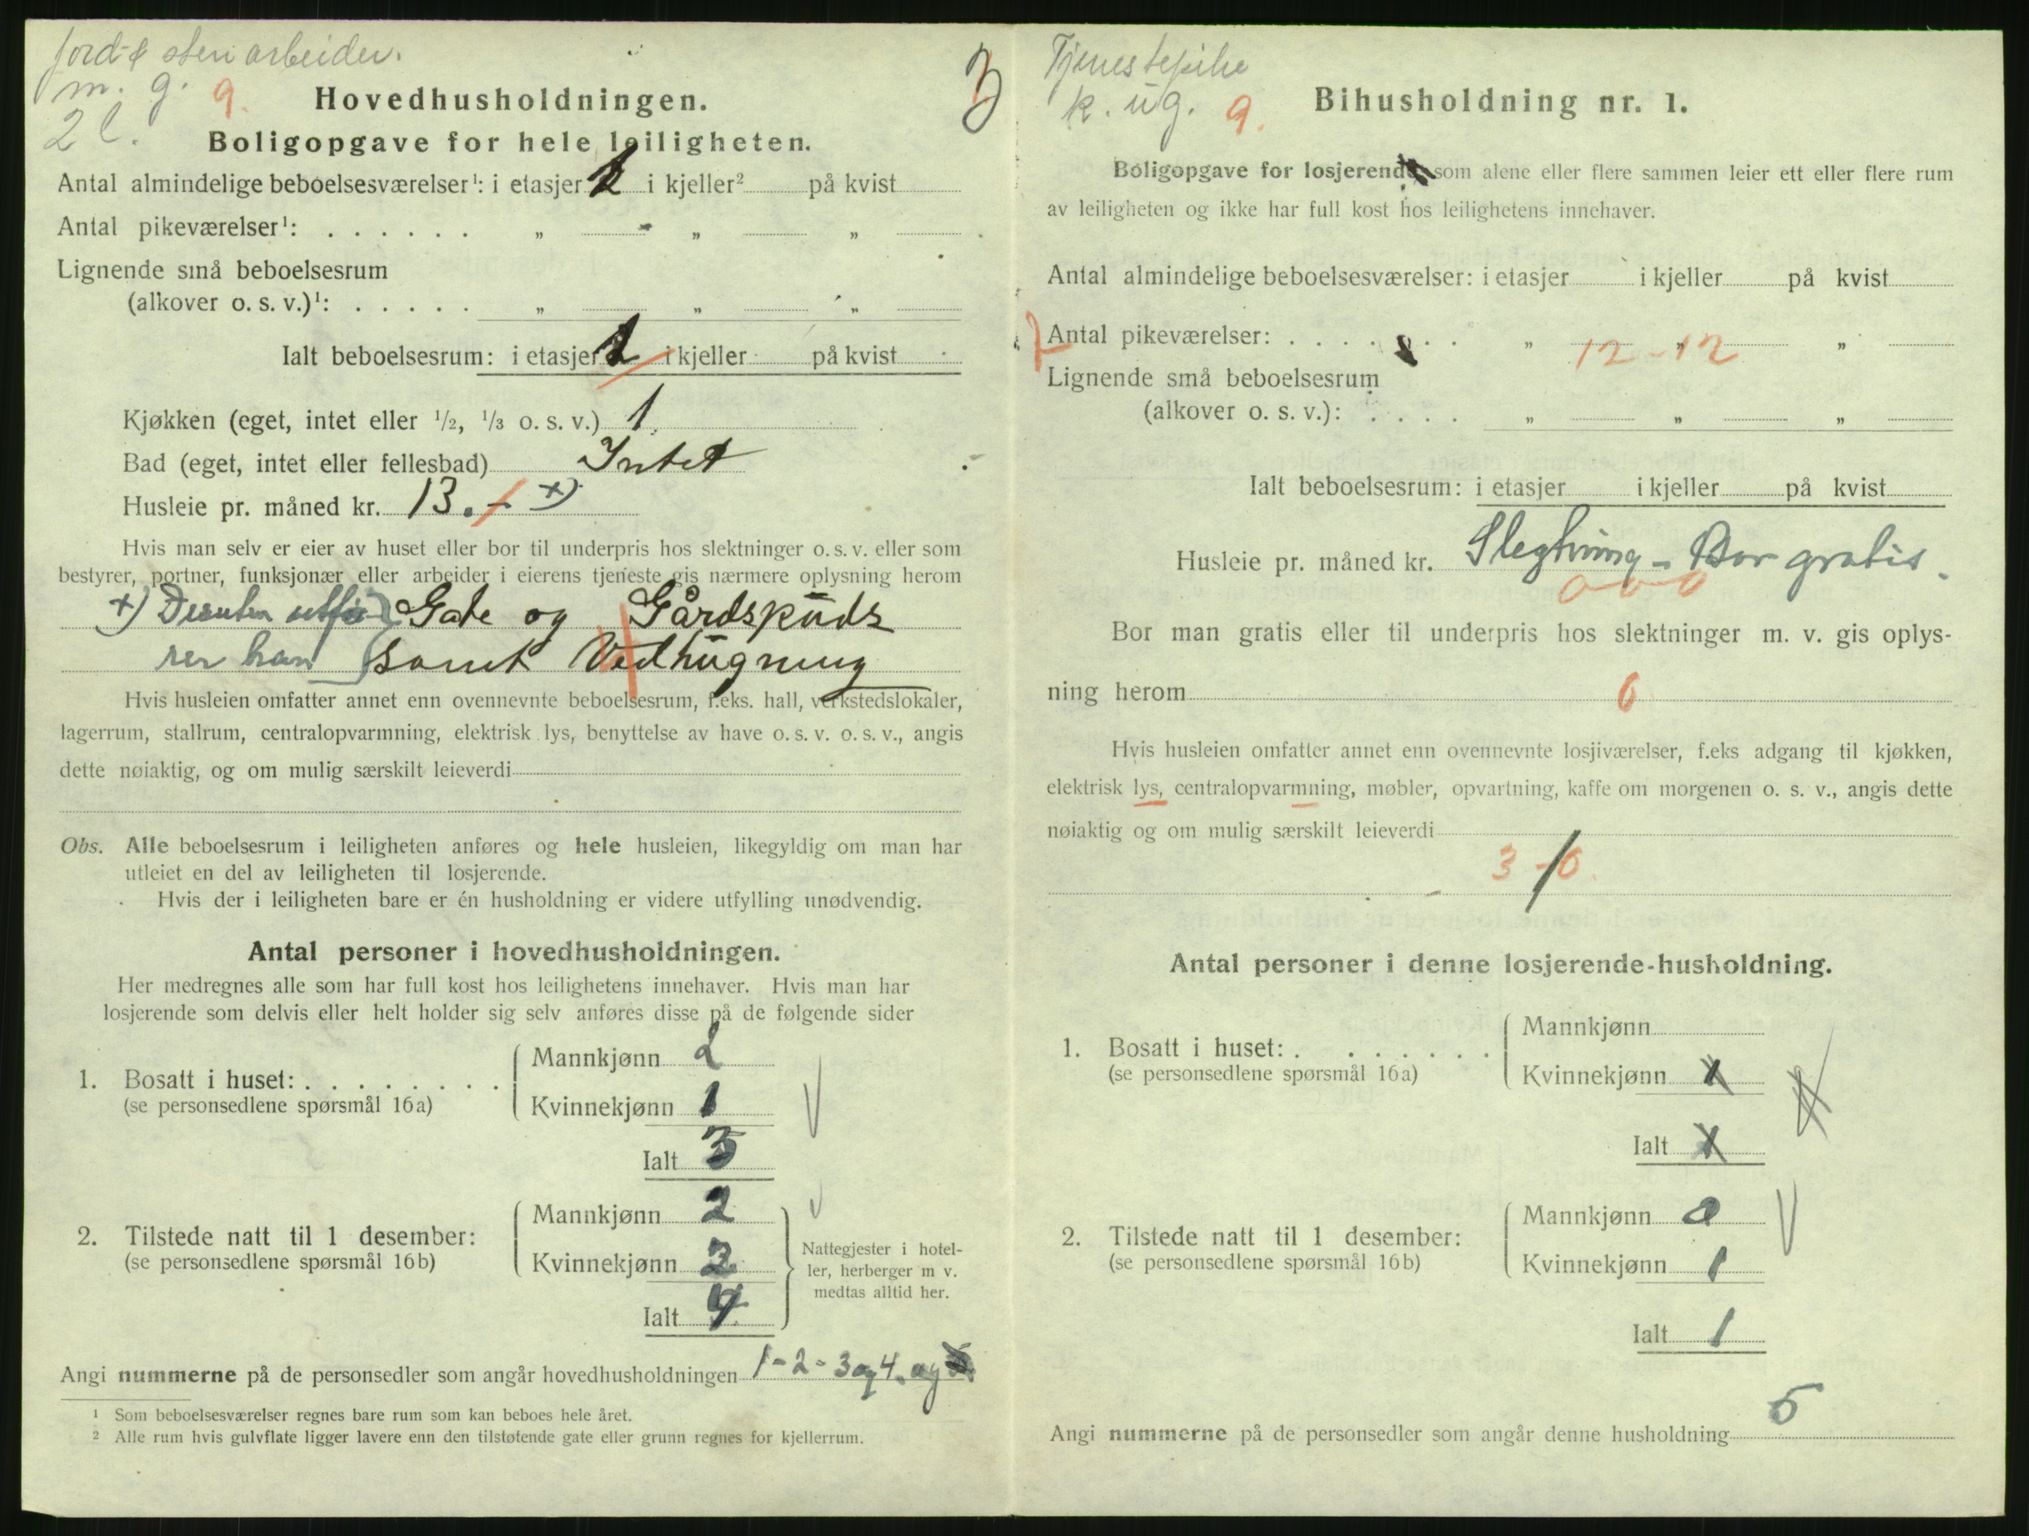 jord- & stenarbeider.
m. g. 9.
2 l.
3
Hovedhusholdningen.
Boligopgave for hele leiligheten.
Antal almindelige beboelsesværelser¹: i etasjer i kjeller² på kvist
Antal pikeværelser¹: . . . . . . „ „ „
Lignende små beboelsesrum
(alkover o. s. v.)¹: . . . . . „ „ „
Ialt beboelsesrum: i etasjer i kjeller på kvist
Kjøkken (eget, intet eller 1/2, 1/3 o. s. v.) 1
Bad (eget, intet eller fellesbad) Intet
Husleie pr. måned kr. 13. - x)
Hvis man selv er eier av huset eller bor til underpris hos slektninger o. s. v. eller som
bestyrer, portner, funksjonær eller arbeider i eierens tjeneste gis nærmere oplysning herom
x) Desuten utfø- Gate og Gårdspuds
rer han samt Vedhugning
Hvis husleien omfatter annet enn ovennevnte beboelsesrum, f.eks. hall, verkstedslokaler,
lagerrum, stallrum, centralopvarmning, elektrisk lys, benyttelse av have o. s. v. o. s. v., angis
dette nøiaktig, og om mulig særskilt leieverdi
Obs. Alle beboelsesrum i leiligheten anføres og hele husleien, likegyldig om man har
utleiet en del av leiligheten til losjerende.
Hvis der i leiligheten bare er én husholdning er videre utfylling unødvendig.
Antal personer i hovedhusholdningen.
Her medregnes alle som har full kost hos leilighetens innehaver. Hvis man har
losjerende som delvis eller helt holder sig selv anføres disse på de følgende sider
1. Bosatt i huset: . . . . . . . . Mannkjønn 2
(se personsedlene spørsmål 16a) Kvinnekjønn 1
Ialt 3
2. Tilstede natt til 1 desember: Mannkjønn 2
(se personsedlene spørsmål 16b) Kvinnekjønn 2
Ialt 4
Nattegjester i hotel-
ler, herberger m v.
medtas alltid her.
Angi nummerne på de personsedler som angår hovedhusholdningen 1-2-3 og 4. og
¹ Som beboelsesværelser regnes bare rum som kan beboes hele året.
² Alle rum hvis gulvflate ligger lavere enn den tilstøtende gate eller grunn regnes for kjellerrum.
Tjenestepike
k. ug. 9.
Bihusholdning nr. 1.
Boligopgave for losjerende som alene eller flere sammen leier ett eller flere rum
av leiligheten og ikke har full kost hos leilighetens innehaver.
Antal almindelige beboelsesværelser: i etasjer i kjeller på kvist
Antal pikeværelser: . . . . . . . „ „ „
12 - 12
Lignende små beboelsesrum
(alkover o. s. v.): . . . . „ „ „
Ialt beboelsesrum: i etasjer i kjeller på kvist
Husleie pr. måned kr. Slegtning - Bor gratis.
0-0 0
Bor man gratis eller til underpris hos slektninger m. v. gis oplys-
ning herom 6
Hvis husleien omfatter annet enn ovennevnte losjiværelser, f.eks adgang til kjøkken,
elektrisk lys, centralopvarmning, møbler, opvartning, kaffe om morgenen o. s. v., angis dette
nøiaktig og om mulig særskilt leieverdi
3 - 0.
Antal personer i denne losjerende-husholdning.
1. Bosatt i huset: . . . . . . . Mannkjønn
(se personsedlene spørsmål 16a) Kvinnekjønn 1
Ialt 1
2. Tilstede natt til 1 desember: Mannkjønn 0
(se personsedlene spørsmål 16b) Kvinnekjønn 1
Ialt 1
Angi nummerne på de personsedler som angår denne husholdning 5